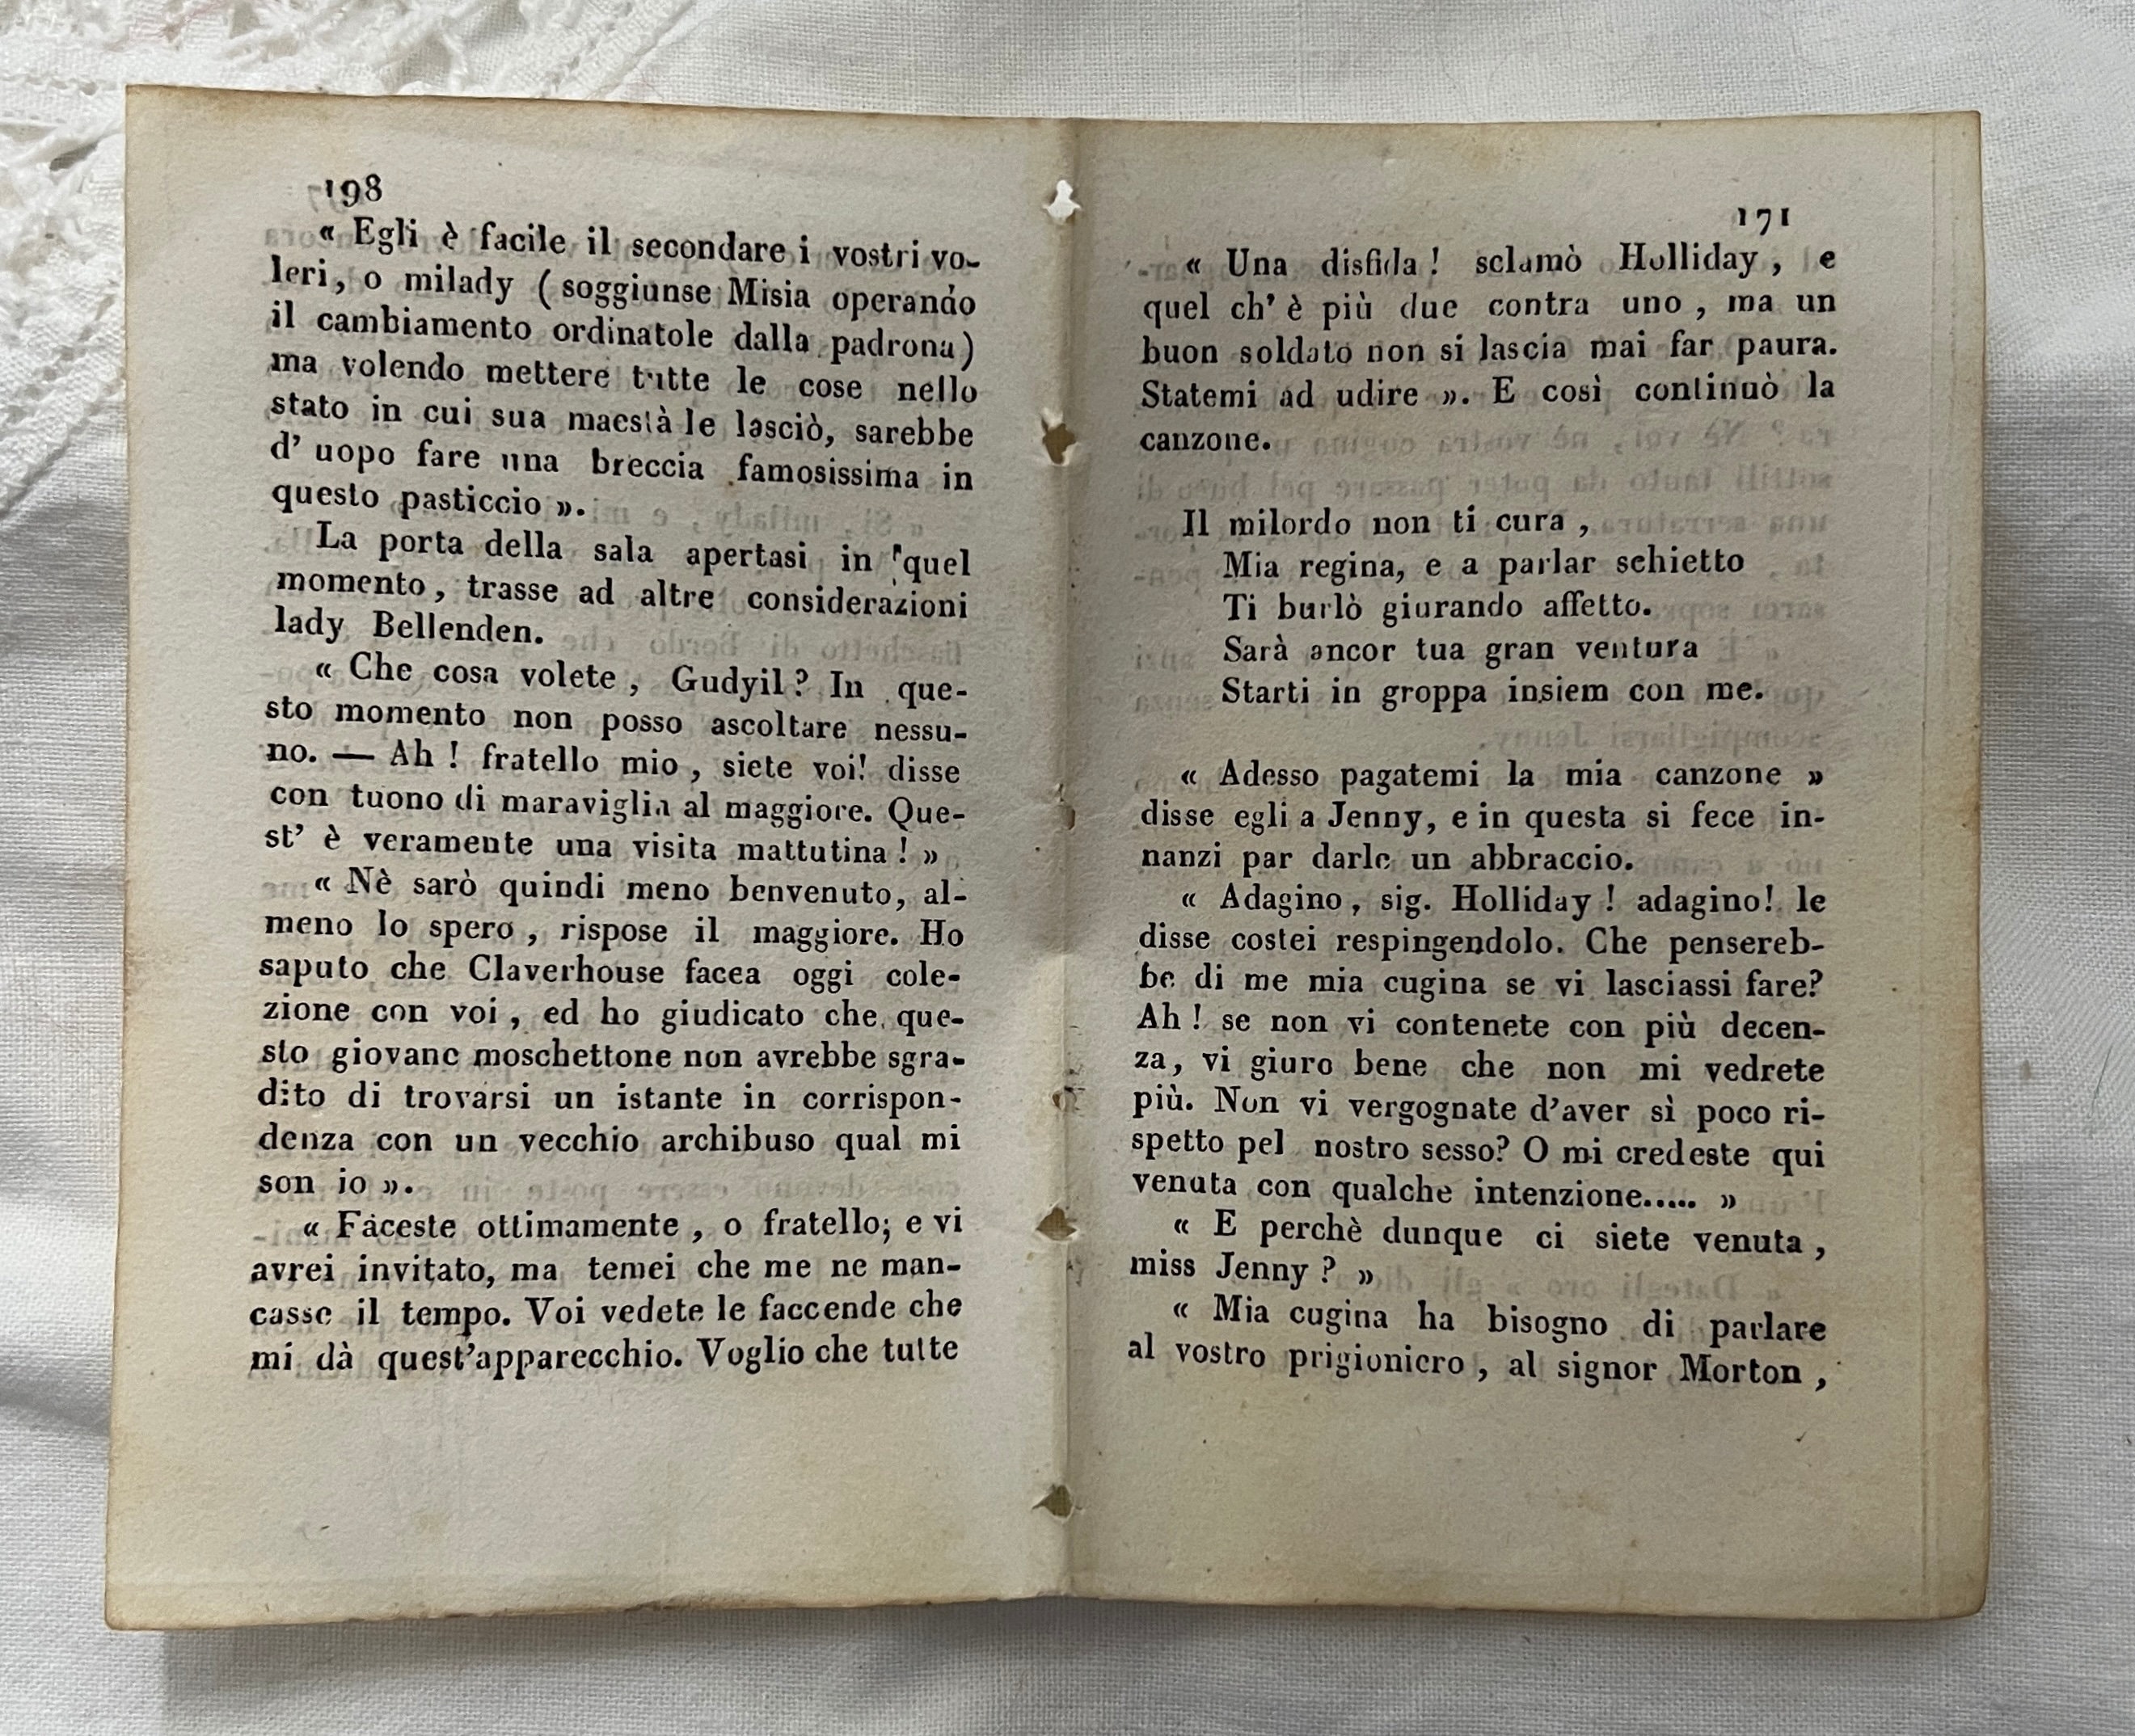 198
« Egli è facile il secondare i vostri vo-
leri, o milady ( soggiunse Misia operando
il cambiamento ordinatole dalla padrona)
ma volendo mettere tutte le cose nello
stato in cui sua maestà le lasciò, sarebbe
d' uopo fare una breccia famosissima in
questo pasticcio ».
La porta della sala apertasi in quel
momento, trasse ad altre considerazioni
lady Bellenden.
« Che cosa volete, Gudyil? In que-
sto momento non posso ascoltare nessu-
no. — Ah! fratello mio, siete voi! disse
con tuono di maraviglia al maggiore. Que-
st' è veramente una visita mattutina! »
« Nè sarò quindi meno benvenuto, al-
meno lo spero, rispose il maggiore. Ho
saputo che Claverhouse facea oggi cole-
zione con voi, ed ho giudicato che que-
sto giovane moschettone non avrebbe sgra-
dito di trovarsi un istante in corrispon-
denza con un vecchio archibuso qual mi
son io ».
« Faceste ottimamente, o fratello; e vi
avrei invitato, ma temei che me ne man-
casse il tempo. Voi vedete le faccende che
mi dà quest'apparecchio. Voglio che tutte
171
« Una disfida! sclamò Holliday, e
quel ch' è più due contra uno, ma un
buon soldato non si lascia mai far paura.
Statemi ad udire ». E così continuò la
canzone.
Il milordo non ti cura,
Mia regina, e a parlar schietto
Ti burlò giurando affetto.
Sarà ancor tua gran ventura
Starti in groppa insiem con me.
« Adesso pagatemi la mia canzone »
disse egli a Jenny, e in questa si fece in-
nanzi par darle un abbraccio.
« Adagino, sig. Holliday! adagino! le
disse costei respingendolo. Che pensereb-
be di me mia cugina se vi lasciassi fare?
Ah! se non vi contenete con più decen-
za, vi giuro bene che non mi vedrete
più. Non vi vergognate d'aver sì poco ri-
spetto pel nostro sesso? O mi credeste qui
venuta con qualche intenzione..... »
« E perchè dunque ci siete venuta,
miss Jenny? »
« Mia cugina ha bisogno di parlare
al vostro prigioniero, al signor Morton,